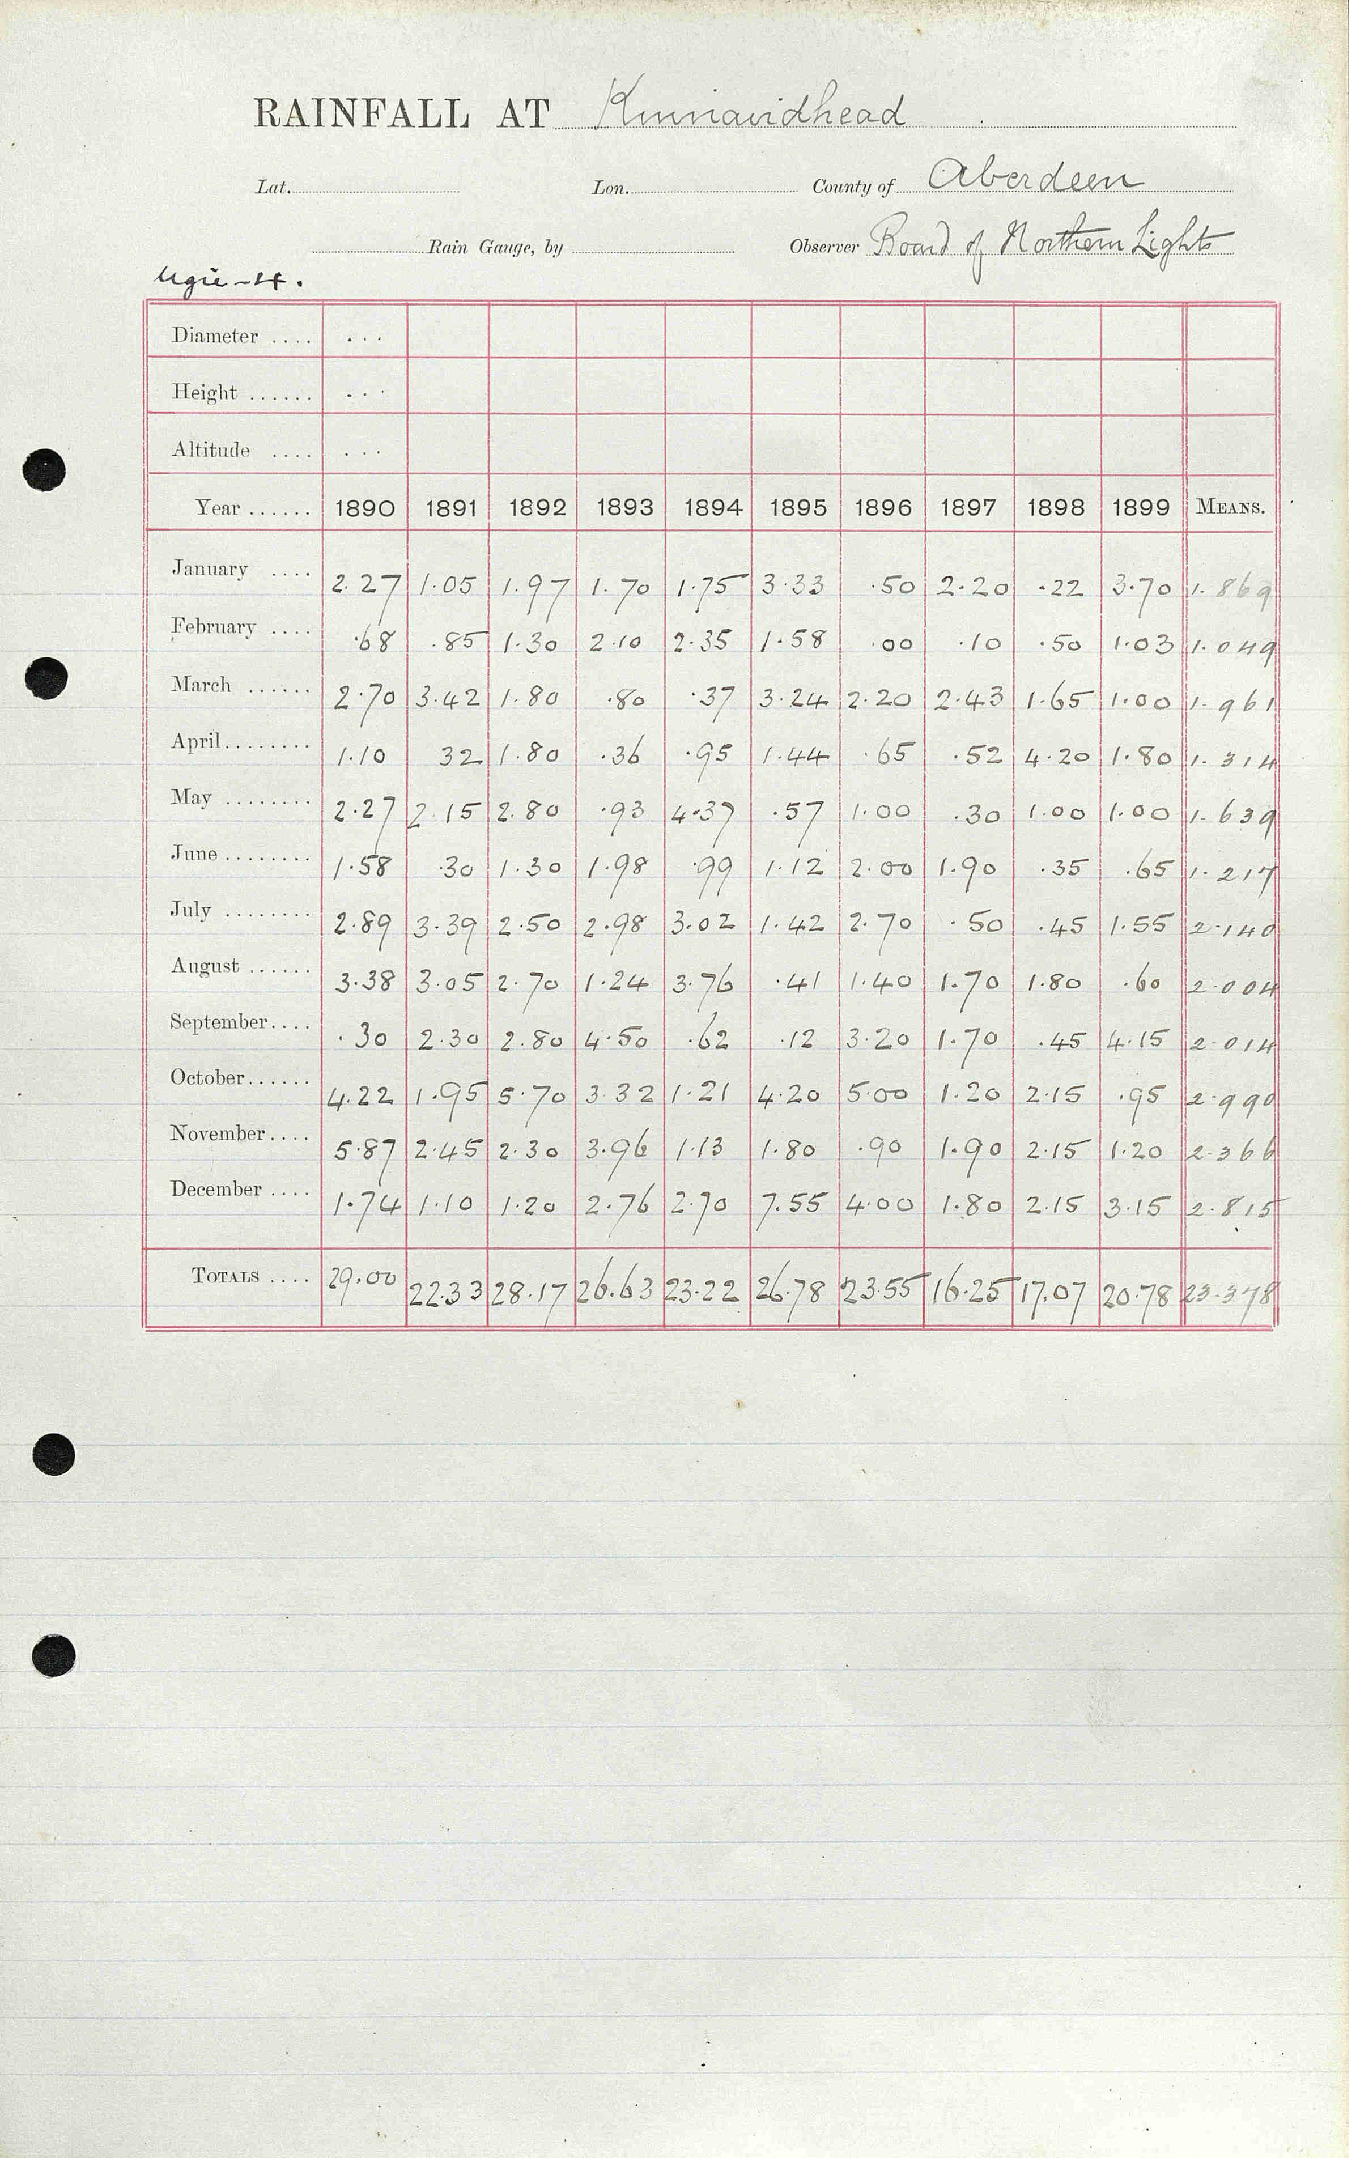 RAINFALL AT Kinnairdhead
Lat. Lon. County of Aberdeen
Rain Gauge, by Observer Board of Northern Lights
Ugie-4.
Diameter .... ...
Height ...... ...
Altitude .... ...
Year ...... 1890 1891 1892 1893 1894 1895 1896 1897 1898 1899 MEANS.
January .... 2.27 1.05 1.97 1.70 1.75 3.33 .50 2.20 .22 3.70 1.869
February .... .68 .85 1.30 2.10 2.35 1.58 .00 .10 .50 1.03 1.049
March ...... 2.70 3.42 1.80 .80 .37 3.24 2.20 2.43 1.65 1.00 1.961
April........ 1.10 32 1.80 .36 .95 1.44 .65 .52 4.20 1.80 1.314
May ........ 2.27 2.15 2.80 .93 4.37 .57 1.00 .30 1.00 1.00 1.639
June ........ 1.58 .30 1.30 1.98 .99 1.12 2.00 1.90 .35 .65 1.217
July ........ 2.89 3.39 2.50 2.98 3.02 1.42 2.70 .50 .45 1.55 2.140
August ...... 3.38 3.05 2.70 1.24 3.76 .41 1.40 1.70 1.80 .60 2.004
September.... .30 2.30 2.80 4.50 .62 .12 3.20 1.70 .45 4.15 2.014
October...... 4.22 1.95 5.70 3.32 1.21 4.20 5.00 1.20 2.15 .95 2.990
November.... 5.87 2.45 2.30 3.96 1.13 1.80 .90 1.90 2.15 1.20 2.366
December .... 1.74 1.10 1.20 2.76 2.70 7.55 4.00 1.80 2.15 3.15 2.815
TOTALS .... 29.00 22.33 28.17 26.63 23.22 26.78 23.55 16.25 17.07 20.78 23.378